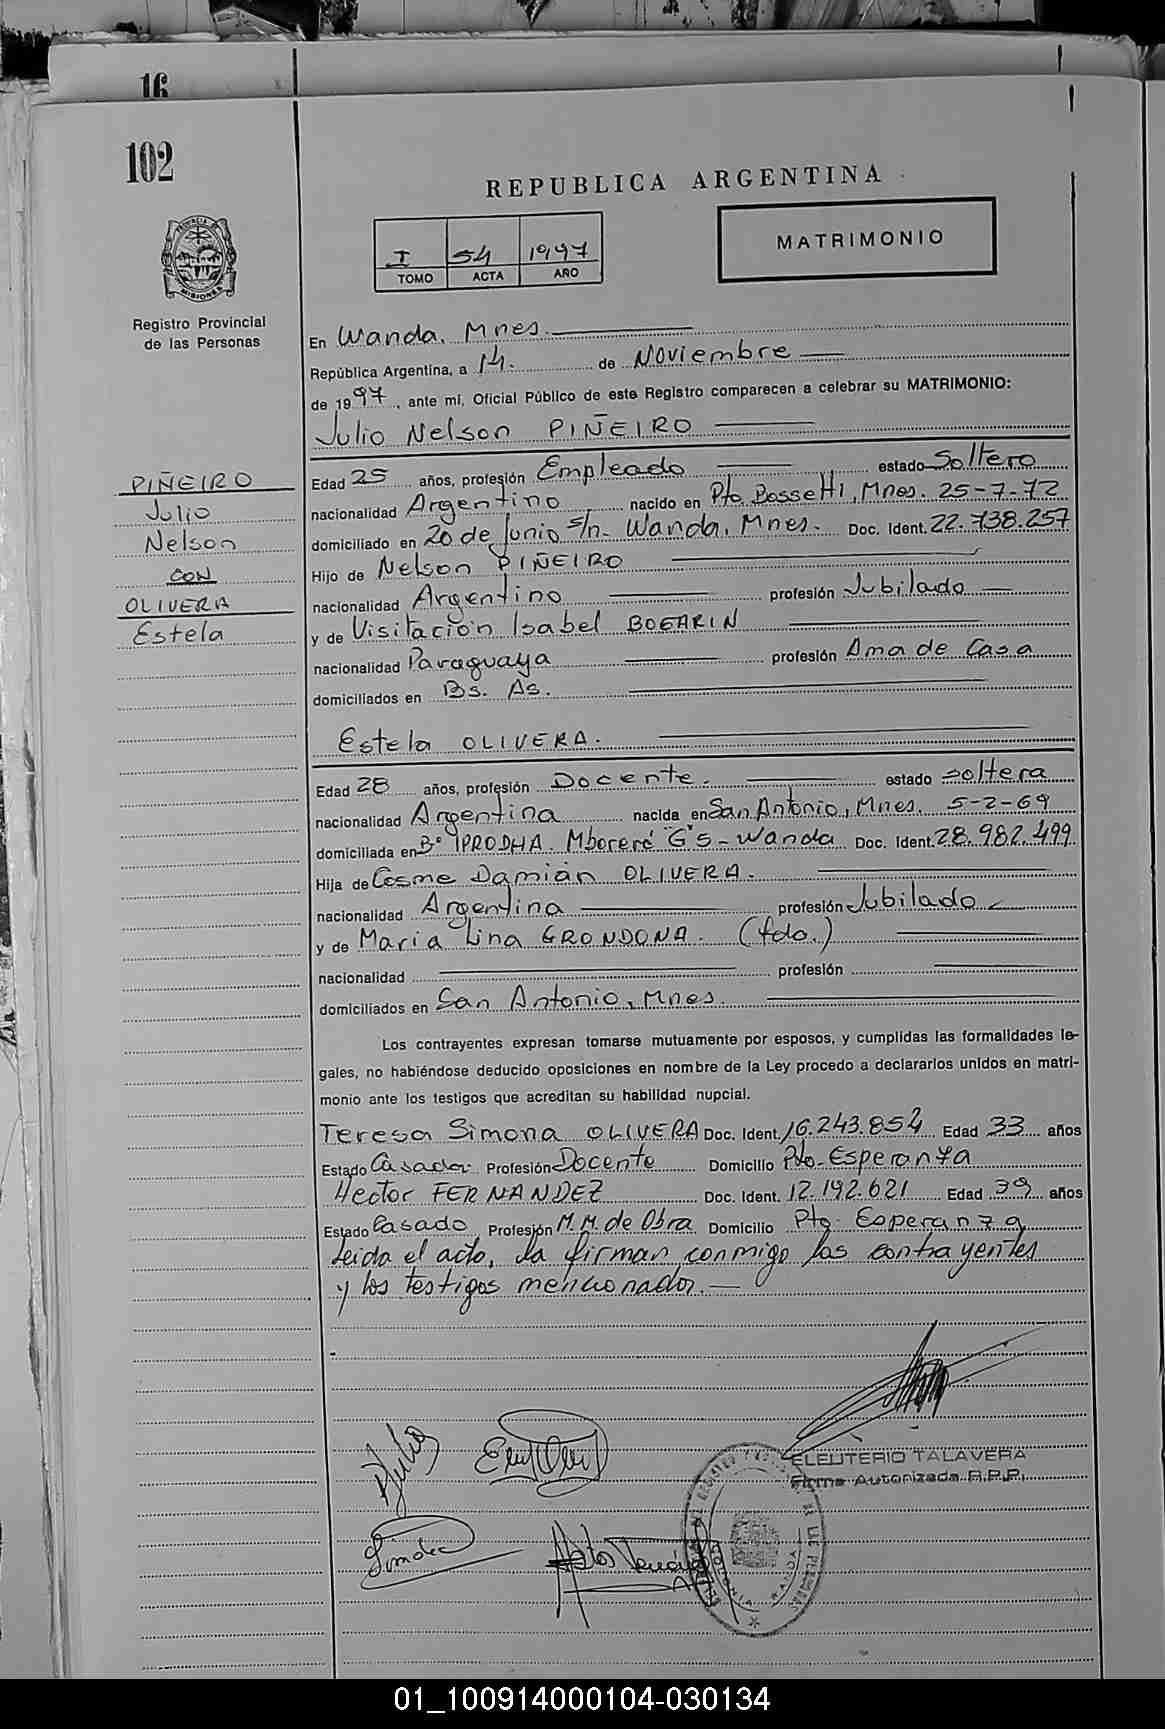 16
102
REPUBLICA ARGENTINA
I 54 1997
TOMO ACTA AÑO
MATRIMONIO
PROVINCIA
MISIONES
Registro Provincial
de las Personas
PIÑEIRO
Julio
Nelson
CON
OLIVERA
Estela
En Wanda, Mnes.
República Argentina, a 14. de Noviembre
de 1997, ante mi, Oficial Público de este Registro comparecen a celebrar su MATRIMONIO:
Julio Nelson PIÑEIRO
Edad 25 años, profesión Empleado estado Soltero
nacionalidad Argentino nacido en Pto Bossetti, Mnes. 25-7-72
domiciliado en 20 de Junio s/n- Wanda, Mnes. Doc. Ident. 22.738.257
Hijo de Nelson PIÑEIRO
nacionalidad Argentino profesión Jubilado
y de Visitación Isabel BOGARIN
nacionalidad Paraguaya profesión Ama de Casa
domiciliados en Bs. As.
Estela OLIVERA.
Edad 28 años, profesión Docente. estado soltera
nacionalidad Argentina nacida en San Antonio, Mnes. 5-2-69
domiciliada en B° IPRODHA. Mbororé "G" 5 - Wanda Doc. Ident. 28.982.499
Hija de Cosme Damián OLIVERA.
nacionalidad Argentina profesión Jubilado
y de Maria Lina GRONDONA. (fdo.)
nacionalidad profesión
domiciliados en San Antonio, Mnes.
Los contrayentes expresan tomarse mutuamente por esposos, y cumplidas las formalidades le-
gales, no habiéndose deducido oposiciones en nombre de la Ley procedo a declararlos unidos en matri-
monio ante los testigos que acreditan su habilidad nupcial.
Teresa Simona OLIVERA Doc. Ident. 16.243.854 Edad 33 años
Estado Casada. Profesión Docente Domicilio Pto. Esperanza
Hector FERNANDEZ Doc. Ident. 12.192.621 Edad 39 años
Estado Casado Profesión M.M. de Obra Domicilio Pto. Esperanza
Leida el acto, la firman conmigo los contrayentes
y los testigos mencionados.
ELEUTERIO TALAVERA
Firma Autorizada R.P.P.
01_100914000104-030134